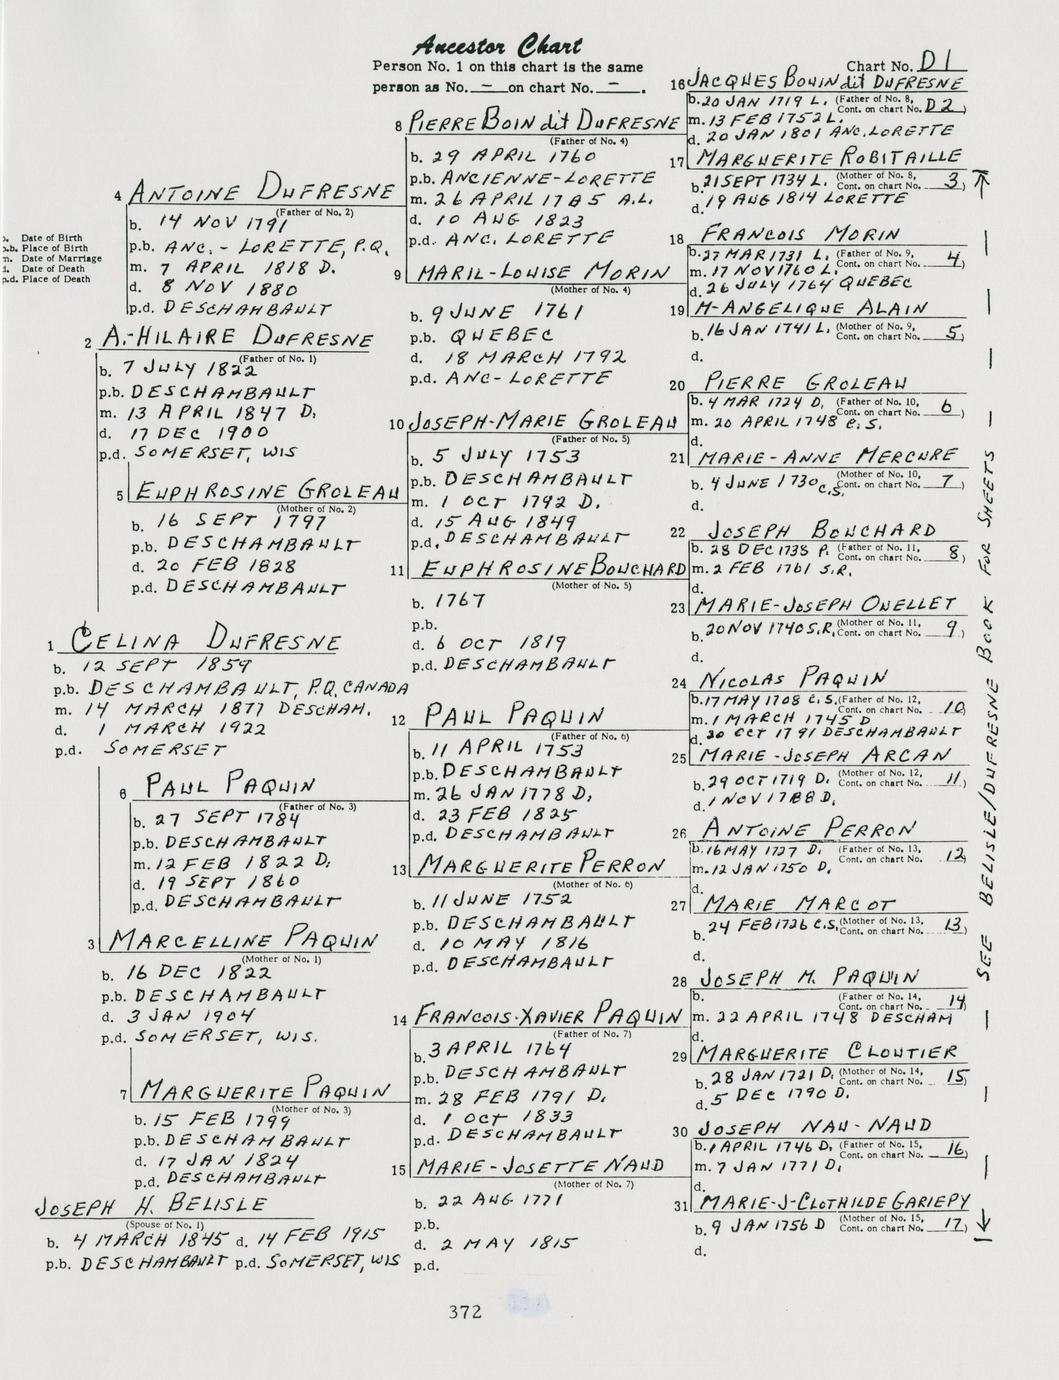 Ancestor Chart
Person No. 1 on this chart is the same
person as No. — on chart No. — .
Chart No. D1
b. Date of Birth
p.b. Place of Birth
m. Date of Marriage
d. Date of Death
p.d. Place of Death
1 CELINA DUFRESNE
b. 12 SEPT 1859
p.b. DESCHAMBAULT, P.Q. CANADA
m. 14 MARCH 1877 DESCHAM.
d. 1 MARCH 1922
p.d. SOMERSET
2 A.-HILAIRE DUFRESNE
(Father of No. 1)
b. 7 JULY 1822
p.b. DESCHAMBAULT
m. 13 APRIL 1847 D.
d. 17 DEC 1900
p.d. SOMERSET, WIS
3 MARCELLINE PAQUIN
(Mother of No. 1)
b. 16 DEC 1822
p.b. DESCHAMBAULT
d. 3 JAN 1904
p.d. SOMERSET, WIS.
JOSEPH H. BELISLE
(Spouse of No. 1)
b. 4 MARCH 1845 d. 14 FEB 1915
p.b. DESCHAMBAULT p.d. SOMERSET, WIS
4 ANTOINE DUFRESNE
(Father of No. 2)
b. 14 NOV 1791
p.b. ANC. - LORETTE, P.Q.
m. 7 APRIL 1818 D.
d. 8 NOV 1880
p.d. DESCHAMBAULT
5 EUPHROSINE GROLEAU
(Mother of No. 2)
b. 16 SEPT 1797
p.b. DESCHAMBAULT
d. 20 FEB 1828
p.d. DESCHAMBAULT
6 PAUL PAQUIN
(Father of No. 3)
b. 27 SEPT 1784
p.b. DESCHAMBAULT
m. 12 FEB 1822 D.
d. 19 SEPT 1860
p.d. DESCHAMBAULT
7 MARGUERITE PAQUIN
(Mother of No. 3)
b. 15 FEB 1799
p.b. DESCHAMBAULT
d. 17 JAN 1824
p.d. DESCHAMBAULT
8 PIERRE BOIN dit DUFRESNE
(Father of No. 4)
b. 29 APRIL 1760
p.b. ANCIENNE-LORETTE
m. 26 APRIL 1785 A.L.
d. 10 AUG 1823
p.d. ANC. LORETTE
9 MARIL-LOUISE MORIN
(Mother of No. 4)
b. 9 JUNE 1761
p.b. QUEBEC
d. 18 MARCH 1792
p.d. ANC- LORETTE
10 JOSEPH-MARIE GROLEAU
(Father of No. 5)
b. 5 JULY 1753
p.b. DESCHAMBAULT
m. 1 OCT 1792 D.
d. 15 AUG 1849
p.d. DESCHAMBAULT
11 EUPHROSINE BOUCHARD
(Mother of No. 5)
b. 1767
p.b.
d. 6 OCT 1819
p.d. DESCHAMBAULT
12 PAUL PAQUIN
(Father of No. 6)
b. 11 APRIL 1753
p.b. DESCHAMBAULT
m. 26 JAN 1778 D.
d. 23 FEB 1825
p.d. DESCHAMBAULT
13 MARGUERITE PERRON
(Mother of No. 6)
b. 11 JUNE 1752
p.b. DESCHAMBAULT
d. 10 MAY 1816
p.d. DESCHAMBAULT
14 FRANCOIS-XAVIER PAQUIN
(Father of No. 7)
b. 3 APRIL 1764
p.b. DESCHAMBAULT
m. 28 FEB 1791 D.
d. 1 OCT 1833
p.d. DESCHAMBAULT
15 MARIE-JOSETTE NAUD
(Mother of No. 7)
b. 22 AUG 1771
p.b.
d. 2 MAY 1815
p.d.
16 JACQUES BOUIN dit DUFRESNE
b. 20 JAN 1719 L. (Father of No. 8,
Cont. on chart No. D2)
m. 13 FEB 1752 L.
d. 20 JAN 1801 ANC. LORETTE
17 MARGUERITE ROBITAILLE
b. 21 SEPT 1734 L. (Mother of No. 8,
Cont. on chart No. 3)
d. 19 AUG 1814 LORETTE
18 FRANCOIS MORIN
b. 27 MAR 1731 L. (Father of No. 9,
Cont. on chart No. 4)
m. 17 NOV 1760 L.
d. 26 JULY 1764 QUEBEC
19 M-ANGELIQUE ALAIN
b. 16 JAN 1741 L. (Mother of No. 9,
Cont. on chart No. 5)
d.
20 PIERRE GROLEAU
b. 4 MAR 1724 D. (Father of No. 10,
Cont. on chart No. 6)
m. 20 APRIL 1748 C.S.
d.
21 MARIE-ANNE MERCURE
b. 4 JUNE 1730 C.S. (Mother of No. 10,
Cont. on chart No. 7)
d.
22 JOSEPH BOUCHARD
b. 28 DEC 1738 P. (Father of No. 11,
Cont. on chart No. 8)
m. 2 FEB 1761 S.R.
d.
23 MARIE-JOSEPH OUELLET
b. 20 NOV 1740 S.R. (Mother of No. 11,
Cont. on chart No. 9)
d.
24 NICOLAS PAQUIN
b. 17 MAY 1708 C.S. (Father of No. 12,
Cont. on chart No. 10)
m. 1 MARCH 1745 D
d. 20 OCT 1791 DESCHAMBAULT
25 MARIE-JOSEPH ARCAN
b. 29 OCT 1719 D. (Mother of No. 12,
Cont. on chart No. 11)
d. 1 NOV 1788 D.
26 ANTOINE PERRON
b. 16 MAY 1727 D. (Father of No. 13,
Cont. on chart No. 12)
m. 12 JAN 1750 D.
d.
27 MARIE MARCOT
b. 24 FEB 1726 C.S. (Mother of No. 13,
Cont. on chart No. 13)
d.
28 JOSEPH M. PAQUIN
b. (Father of No. 14,
Cont. on chart No. 14)
m. 22 APRIL 1748 DESCHAM
d.
29 MARGUERITE CLOUTIER
b. 28 JAN 1721 D. (Mother of No. 14,
Cont. on chart No. 15)
d. 5 DEC 1790 D.
30 JOSEPH NAU-NAUD
b. 1 APRIL 1746 D. (Father of No. 15,
Cont. on chart No. 16)
m. 7 JAN 1771 D.
d.
31 MARIE-J-CLOTHILDE GARIEPY
b. 9 JAN 1756 D (Mother of No. 15,
Cont. on chart No. 17)
d.
SEE BELISLE/DUFRESNE BOOK FOR SHEETS
372